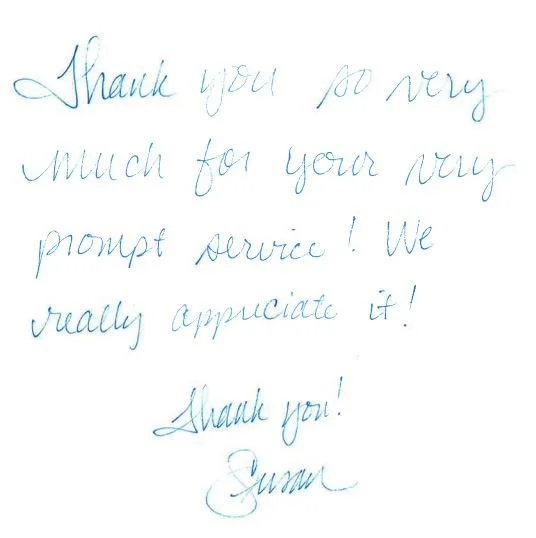 Thank you so very
much for your very
prompt service! We
really appreciate it!
Thank you!
Susan